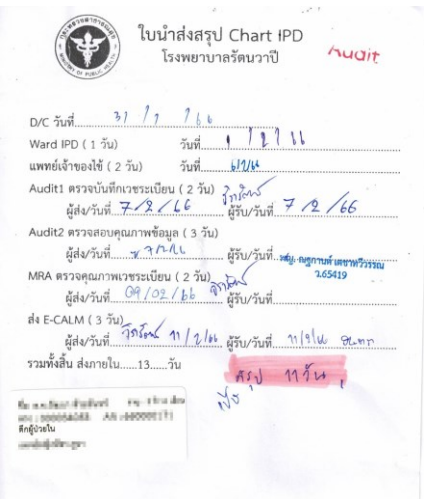 กระทรวงสาธารณสุข
MINISTRY OF PUBLIC HEALTH
ใบนำส่งสรุป Chart IPD
โรงพยาบาลรัตนวาปี
Audit
D/C วันที่ 31 / 1 / 66
Ward IPD ( 1 วัน) วันที่ 1 / 2 / 66
แพทย์เจ้าของไข้ ( 2 วัน) วันที่ 6/2/66
Audit1 ตรวจบันทึกเวชระเบียน ( 2 วัน)
ผู้ส่ง/วันที่ 7 / 2 / 66 ผู้รับ/วันที่ 7 / 2 / 66
Audit2 ตรวจสอบคุณภาพข้อมูล ( 3 วัน)
ผู้ส่ง/วันที่ 7/2/66 ผู้รับ/วันที่
ว.65419
MRA ตรวจคุณภาพเวชระเบียน ( 2 วัน)
ผู้ส่ง/วันที่ 09/02/66 ผู้รับ/วันที่
ส่ง E-CALM ( 3 วัน)
ผู้ส่ง/วันที่ 11/2/66 ผู้รับ/วันที่ 11/2/66
รวมทั้งสิ้น ส่งภายใน......13.....วัน
สรุป 11 วัน
ตึกผู้ป่วยใน